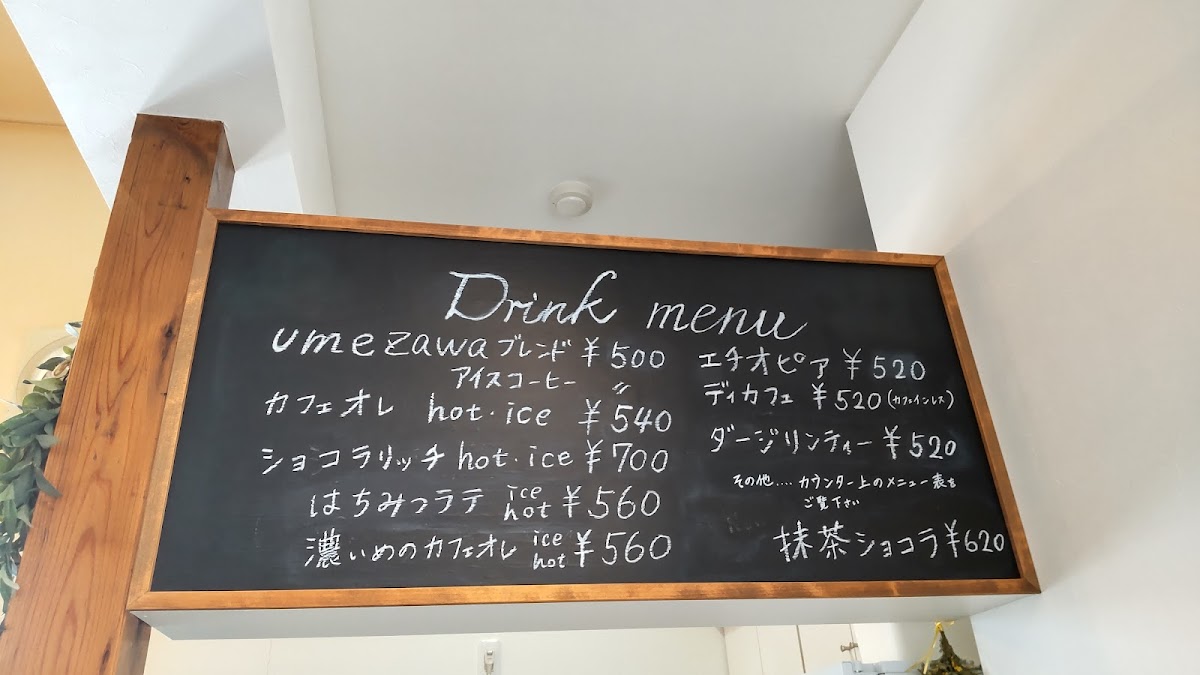 Drink menu
umezawaブレンド ¥500
アイスコーヒー 〃
カフェオレ hot・ice ¥540
ショコラリッチ hot・ice ¥700
はちみつラテ ice hot ¥560
濃いめのカフェオレ ice hot ¥560
エチオピア ¥520
ディカフェ ¥520(カフェインレス)
ダージリンティー ¥520
その他.... カウンター上のメニュー表を
ご覧下さい
抹茶ショコラ ¥620